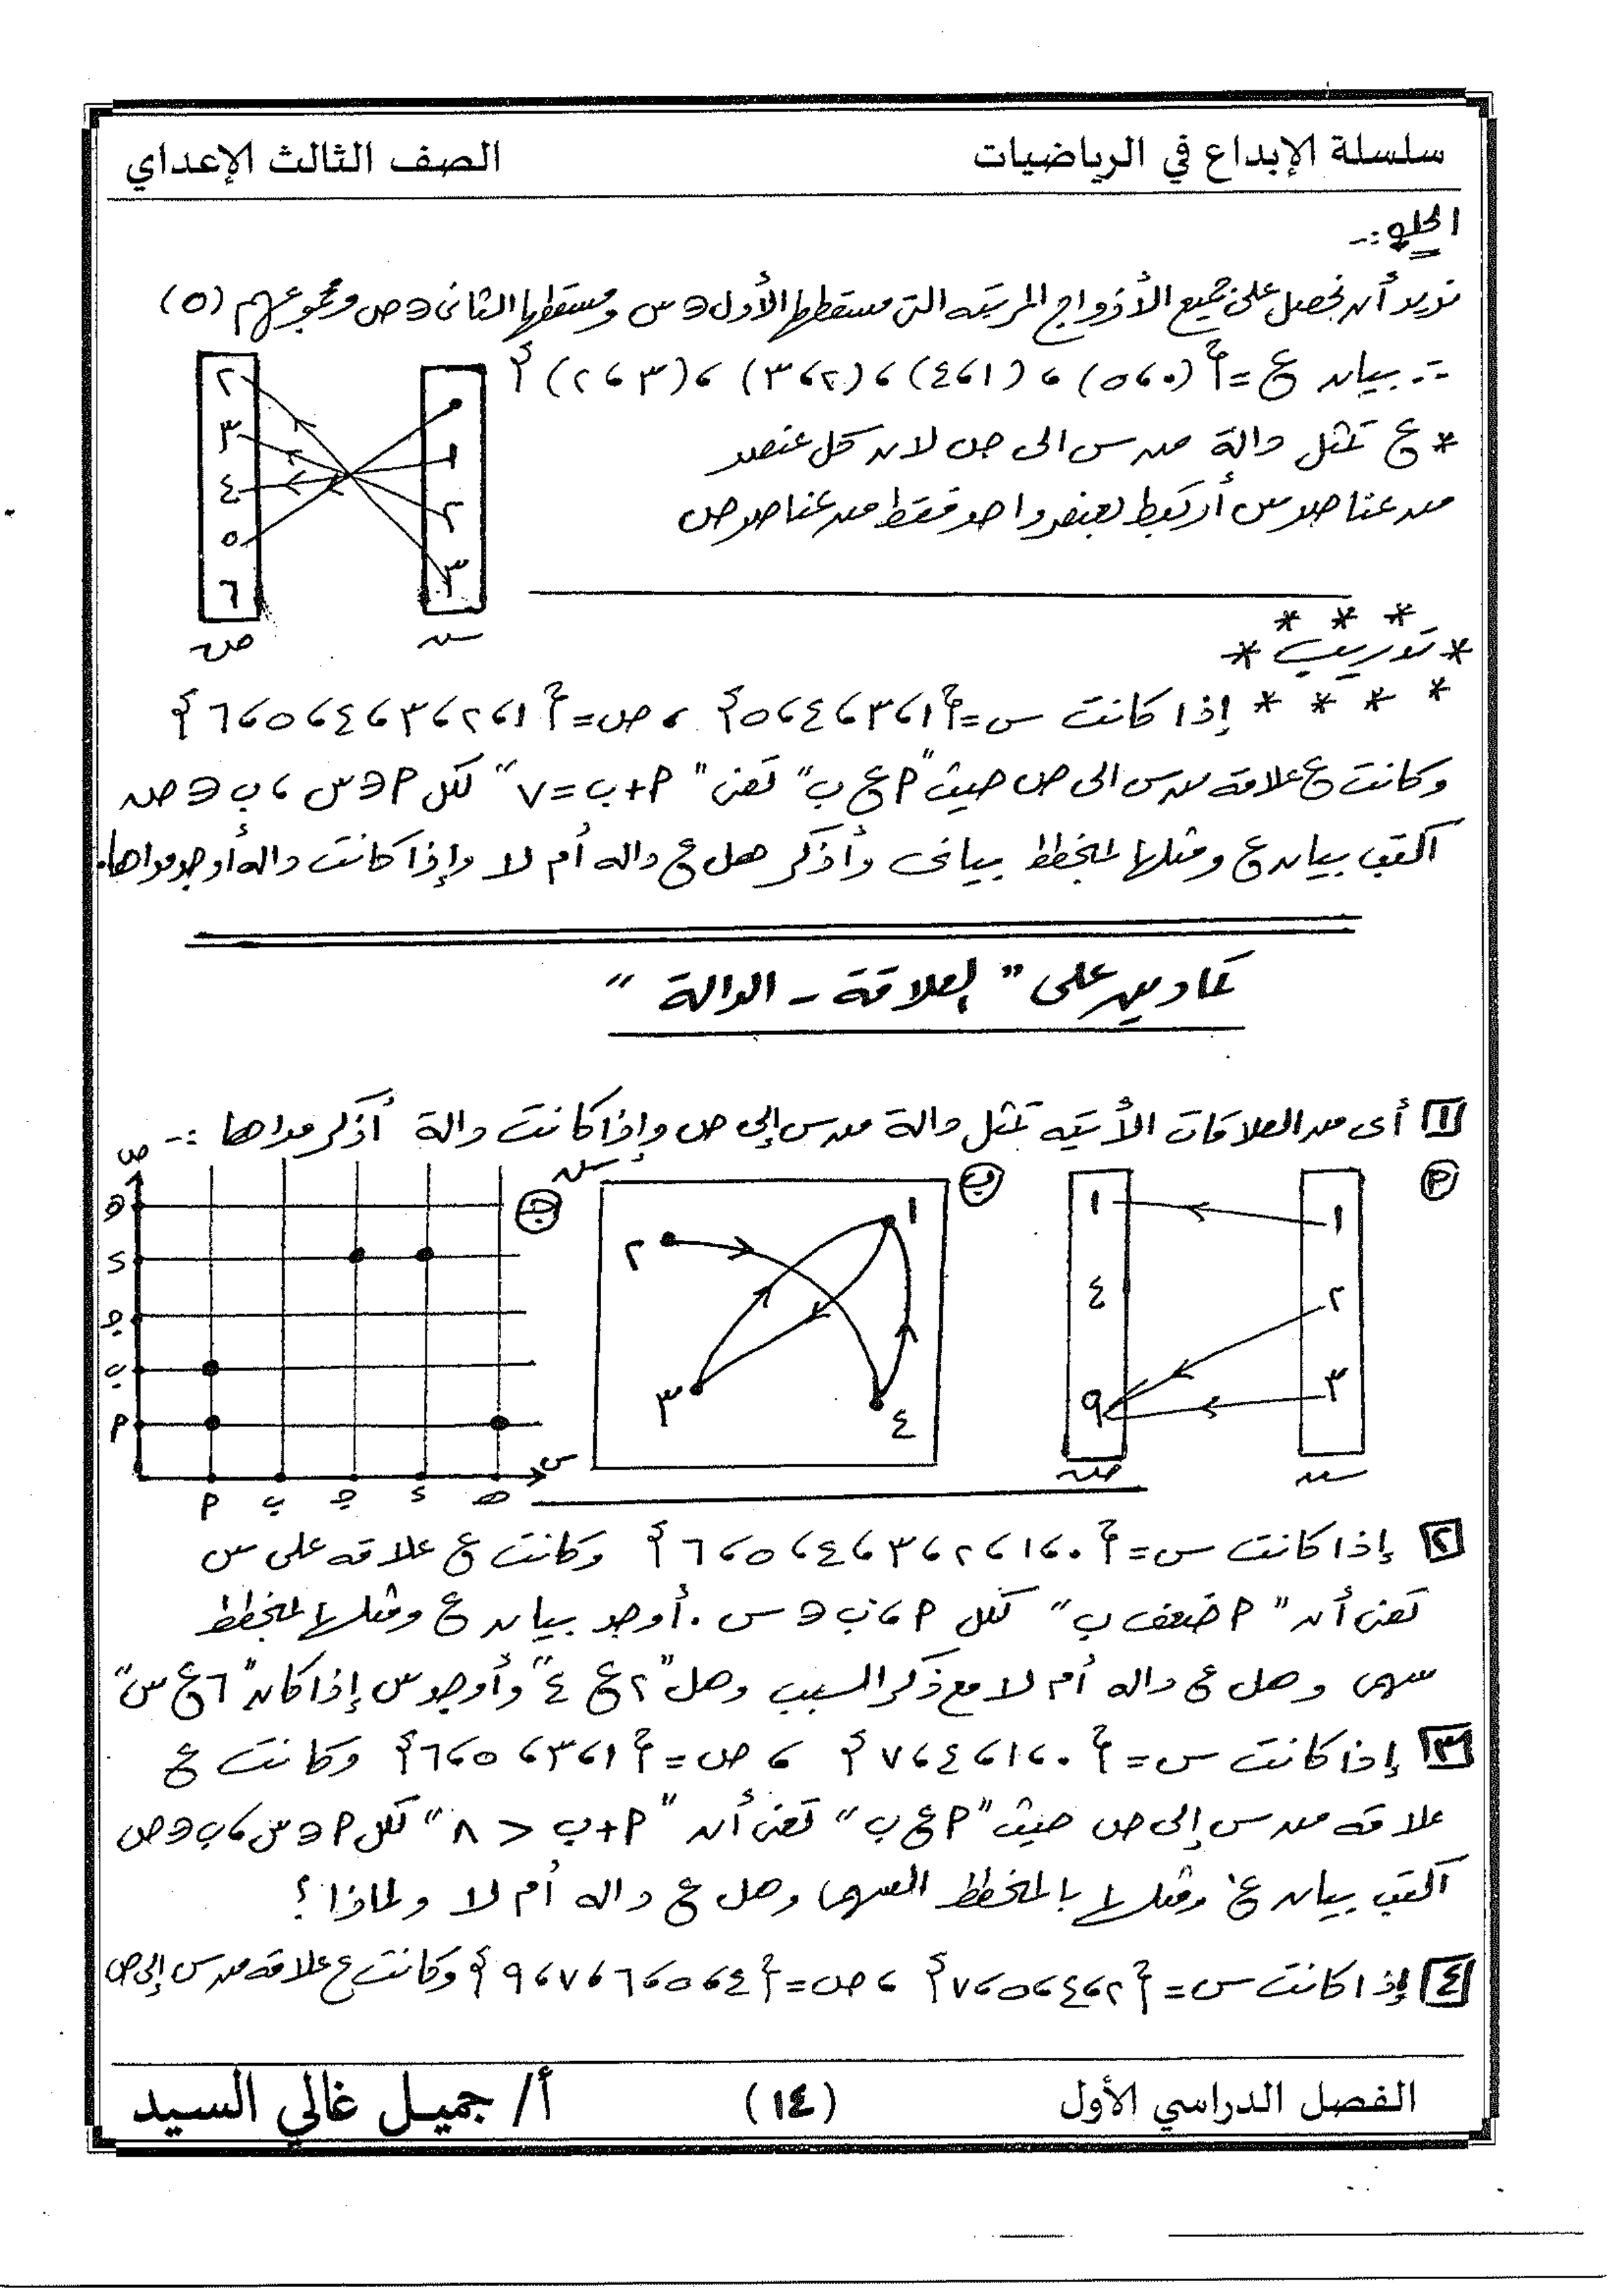 سلسلة الإبداع في الرياضيات
الصف الثالث الإعداي
الحل :-
نريد أن نحصل على جميع الأزواج المرتبه التى مسقطها الأول ∈ س ومسقطها الثانى ∈ ص ومجموعهم (٥)
∴ بيان ع = {(٠، ٥)، (١، ٤)، (٢، ٣)، (٣، ٢)}
* ع تمثل دالة من س الى ص لان كل عنصر
من عناصر س أرتبط بعنصر واحد فقط من عناصر ص
٠
١
٢
٣
س
٢
٣
٤
٥
٦
ص
* * *
* تدريب *
* * * * إذا كانت س = {١، ٣، ٤، ٥} ، ص = {١، ٢، ٣، ٤، ٥، ٦}
وكانت ع علاقه من س الى ص حيث "أ ع ب" تعنى "أ + ب = ٧" لكل أ ∈ س ، ب ∈ ص
اكتب بيان ع ومثلها بمخطط بيانى وأذكر هل ع داله أم لا وإذا كانت داله أوجد مداها.
تمارين على "العلاقة - الدالة"
١ أى من العلاقات الأتيه تمثل دالة من س إلى ص وإذا كانت دالة أذكر مداها :-
أ
١
٢
٣
س
١
٤
٩
ص
ب
س
١
٢
٣
٤
ج
ص
ه
د
ج
ب
أ
أ ب ج د ه
س
٢ إذا كانت س = {٠، ١، ٢، ٣، ٤، ٥، ٦} وكانت ع علاقه على س
تعنى أن "أ ضعف ب" لكل أ ، ب ∈ س . أوجد بيان ع ومثلها بمخطط
سهمى وهل ع داله أم لا مع ذكر السبب وهل "٢ ع ٤" وأوجد س إذا كان "٦ ع س"
٣ إذا كانت س = {٠، ١، ٤، ٧} ، ص = {١، ٣، ٥، ٦} وكانت ع
علاقه من س إلى ص حيث "أ ع ب" تعنى أن "أ + ب < ٨" لكل أ ∈ س ، ب ∈ ص
اكتب بيان ع ومثلها بالمخطط السهمى وهل ع داله أم لا ولماذا ؟
٤ إذا كانت س = {٢، ٤، ٥، ٧} ، ص = {٤، ٥، ٦، ٧، ٩} وكانت ع علاقه من س إلى ص
الفصل الدراسي الأول
(١٤)
أ/ جميل غالي السيد